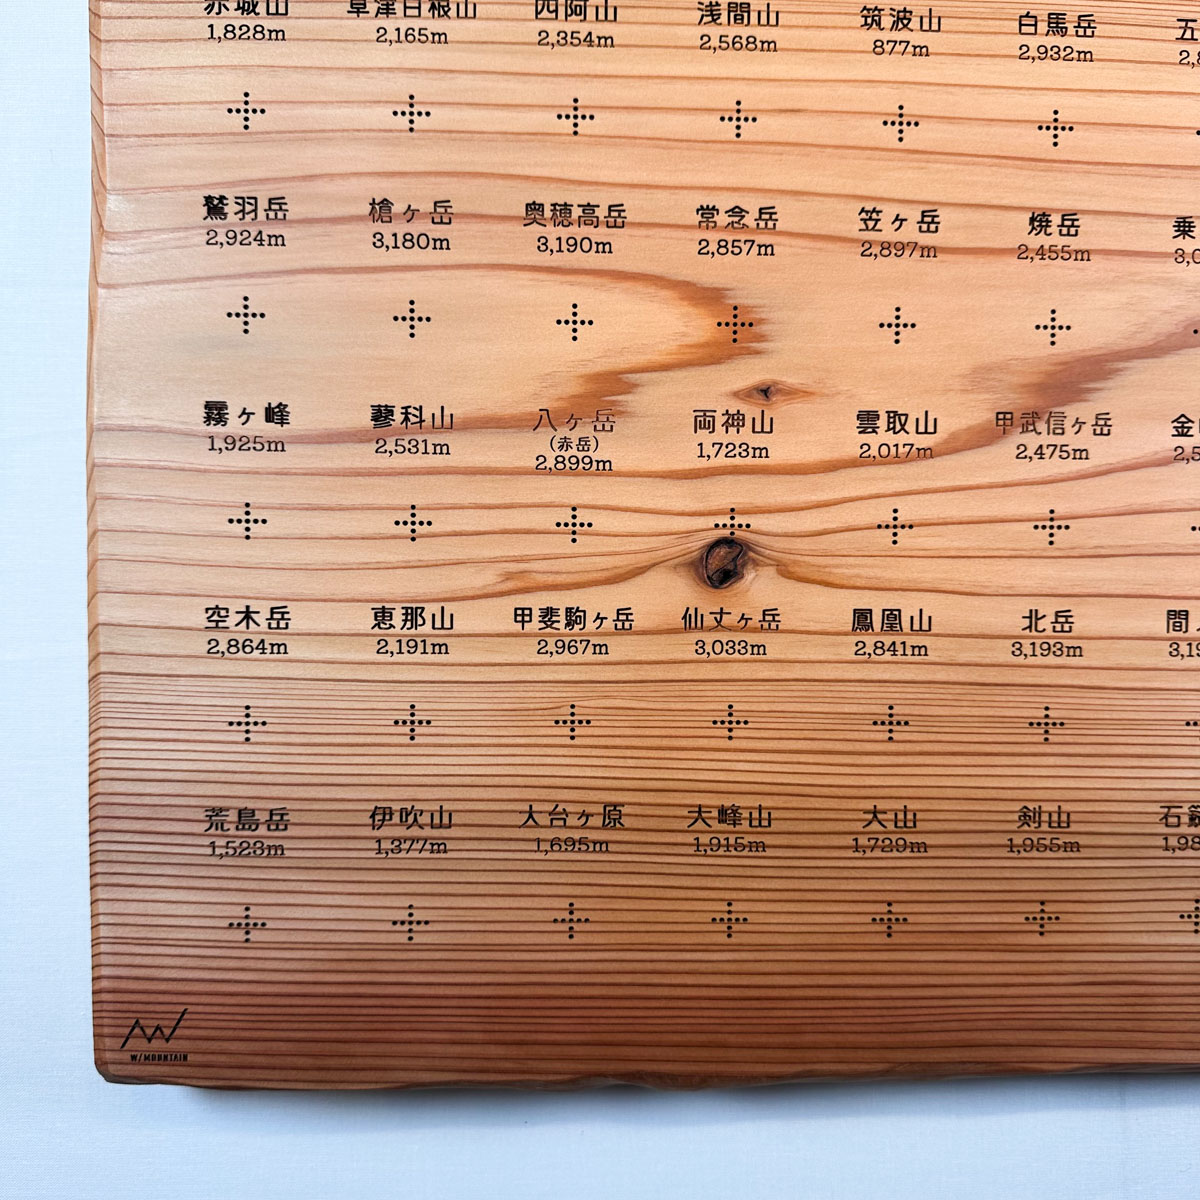 赤城山 草津白根山 四阿山 浅間山 筑波山 白馬岳 五
1,828m 2,165m 2,354m 2,568m 877m 2,932m 2,8
鷲羽岳 槍ヶ岳 奥穂高岳 常念岳 笠ヶ岳 焼岳 乗
2,924m 3,180m 3,190m 2,857m 2,897m 2,455m 3,0
霧ヶ峰 蓼科山 八ヶ岳 両神山 雲取山 甲武信ヶ岳 金
(赤岳)
1,925m 2,531m 2,899m 1,723m 2,017m 2,475m 2,5
空木岳 恵那山 甲斐駒ヶ岳 仙丈ヶ岳 鳳凰山 北岳 間
2,864m 2,191m 2,967m 3,033m 2,841m 3,193m 3,19
荒島岳 伊吹山 大台ヶ原 大峰山 大山 剣山 石鎚
1,523m 1,377m 1,695m 1,915m 1,729m 1,955m 1,98
W/MOUNTAIN